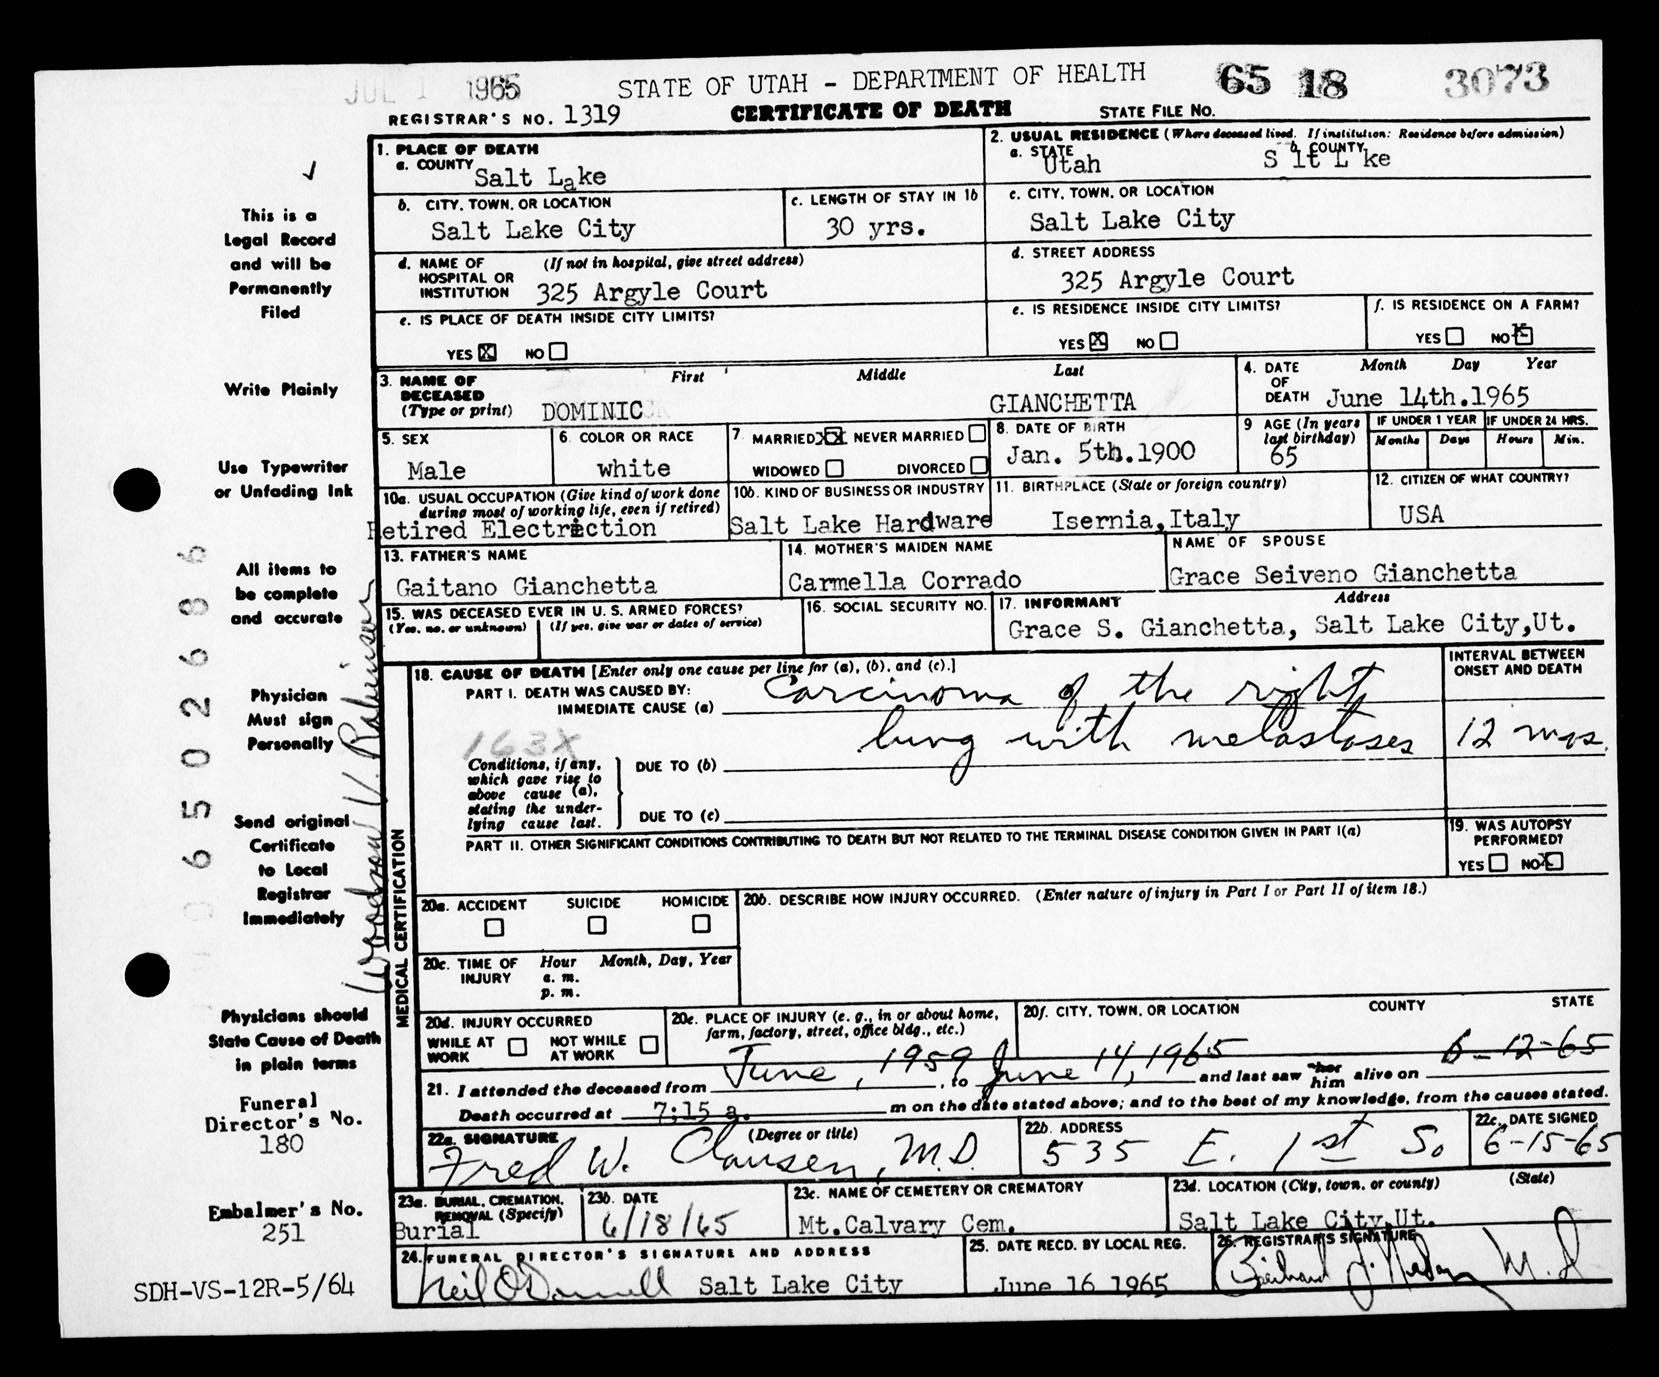 JUL 1 1965
STATE OF UTAH - DEPARTMENT OF HEALTH
65 18 3073
REGISTRAR'S NO. 1319
CERTIFICATE OF DEATH
STATE FILE NO.
1. PLACE OF DEATH
a. COUNTY
Salt Lake
2. USUAL RESIDENCE (Where deceased lived. If institution: Residence before admission)
a. STATE
Utah
b. COUNTY
S lt L ke
b. CITY, TOWN, OR LOCATION
Salt Lake City
c. LENGTH OF STAY IN 1b
30 yrs.
c. CITY, TOWN, OR LOCATION
Salt Lake City
d. NAME OF HOSPITAL OR INSTITUTION (If not in hospital, give street address)
325 Argyle Court
d. STREET ADDRESS
325 Argyle Court
e. IS PLACE OF DEATH INSIDE CITY LIMITS?
YES X NO
e. IS RESIDENCE INSIDE CITY LIMITS?
YES X NO
f. IS RESIDENCE ON A FARM?
YES NO X
3. NAME OF DECEASED (Type or print)
First Middle Last
DOMINIC GIANCHETTA
4. DATE OF DEATH
Month Day Year
June 14th.1965
5. SEX
Male
6. COLOR OR RACE
white
7. MARRIED XX NEVER MARRIED
WIDOWED DIVORCED
8. DATE OF BIRTH
Jan. 5th.1900
9 AGE (In years last birthday)
65
IF UNDER 1 YEAR IF UNDER 24 HRS.
Months Days Hours Min.
10a. USUAL OCCUPATION (Give kind of work done during most of working life, even if retired)
Retired Electriction
10b. KIND OF BUSINESS OR INDUSTRY
Salt Lake Hardware
11. BIRTHPLACE (State or foreign country)
Isernia, Italy
12. CITIZEN OF WHAT COUNTRY?
USA
13. FATHER'S NAME
Gaitano Gianchetta
14. MOTHER'S MAIDEN NAME
Carmella Corrado
NAME OF SPOUSE
Grace Seiveno Gianchetta
15. WAS DECEASED EVER IN U. S. ARMED FORCES?
(Yes, no, or unknown) (If yes, give war or dates of service)
16. SOCIAL SECURITY NO.
17. INFORMANT Address
Grace S. Gianchetta, Salt Lake City, Ut.
MEDICAL CERTIFICATION
18. CAUSE OF DEATH [Enter only one cause per line for (a), (b), and (c).]
INTERVAL BETWEEN ONSET AND DEATH
PART I. DEATH WAS CAUSED BY:
IMMEDIATE CAUSE (a) Carcinoma of the right
lung with metastases 12 mos.
163X
Conditions, if any, which gave rise to above cause (a), stating the underlying cause last.
DUE TO (b)
DUE TO (c)
PART II. OTHER SIGNIFICANT CONDITIONS CONTRIBUTING TO DEATH BUT NOT RELATED TO THE TERMINAL DISEASE CONDITION GIVEN IN PART I(a)
19. WAS AUTOPSY PERFORMED?
YES NO X
20a. ACCIDENT SUICIDE HOMICIDE
20b. DESCRIBE HOW INJURY OCCURRED. (Enter nature of injury in Part I or Part II of item 18.)
20c. TIME OF INJURY Hour Month, Day, Year
a. m.
p. m.
20d. INJURY OCCURRED
WHILE AT WORK NOT WHILE AT WORK
20e. PLACE OF INJURY (e. g., in or about home, farm, factory, street, office bldg., etc.)
20f. CITY, TOWN, OR LOCATION COUNTY STATE
21. I attended the deceased from June, 1959, to June 14, 1965 and last saw her him alive on 6-12-65
Death occurred at 7:15 a. m on the date stated above; and to the best of my knowledge, from the causes stated.
22a. SIGNATURE (Degree or title)
Fred W. Clausen, M.D.
22b. ADDRESS
535 E. 1st So
22c. DATE SIGNED
6-15-65
23a. BURIAL, CREMATION, REMOVAL (Specify)
Burial
23b. DATE
6/18/65
23c. NAME OF CEMETERY OR CREMATORY
Mt.Calvary Cem.
23d. LOCATION (City, town, or county) (State)
Salt Lake City,Ut.
24. FUNERAL DIRECTOR'S SIGNATURE AND ADDRESS
Neil O'Donnell Salt Lake City
25. DATE RECD. BY LOCAL REG.
June 16 1965
26. REGISTRAR'S SIGNATURE
M D
This is a
Legal Record
and will be
Permanently
Filed
Write Plainly
Use Typewriter
or Unfading Ink
All items to
be complete
and accurate
Physician
Must sign
Personally
Send original
Certificate
to Local
Registrar
Immediately
Physicians should
State Cause of Death
in plain terms
Funeral
Director's No.
180
Embalmer's No.
251
SDH-VS-12R-5/64
Woodson V. Robinson
0 6 5 0 2 6 8 6